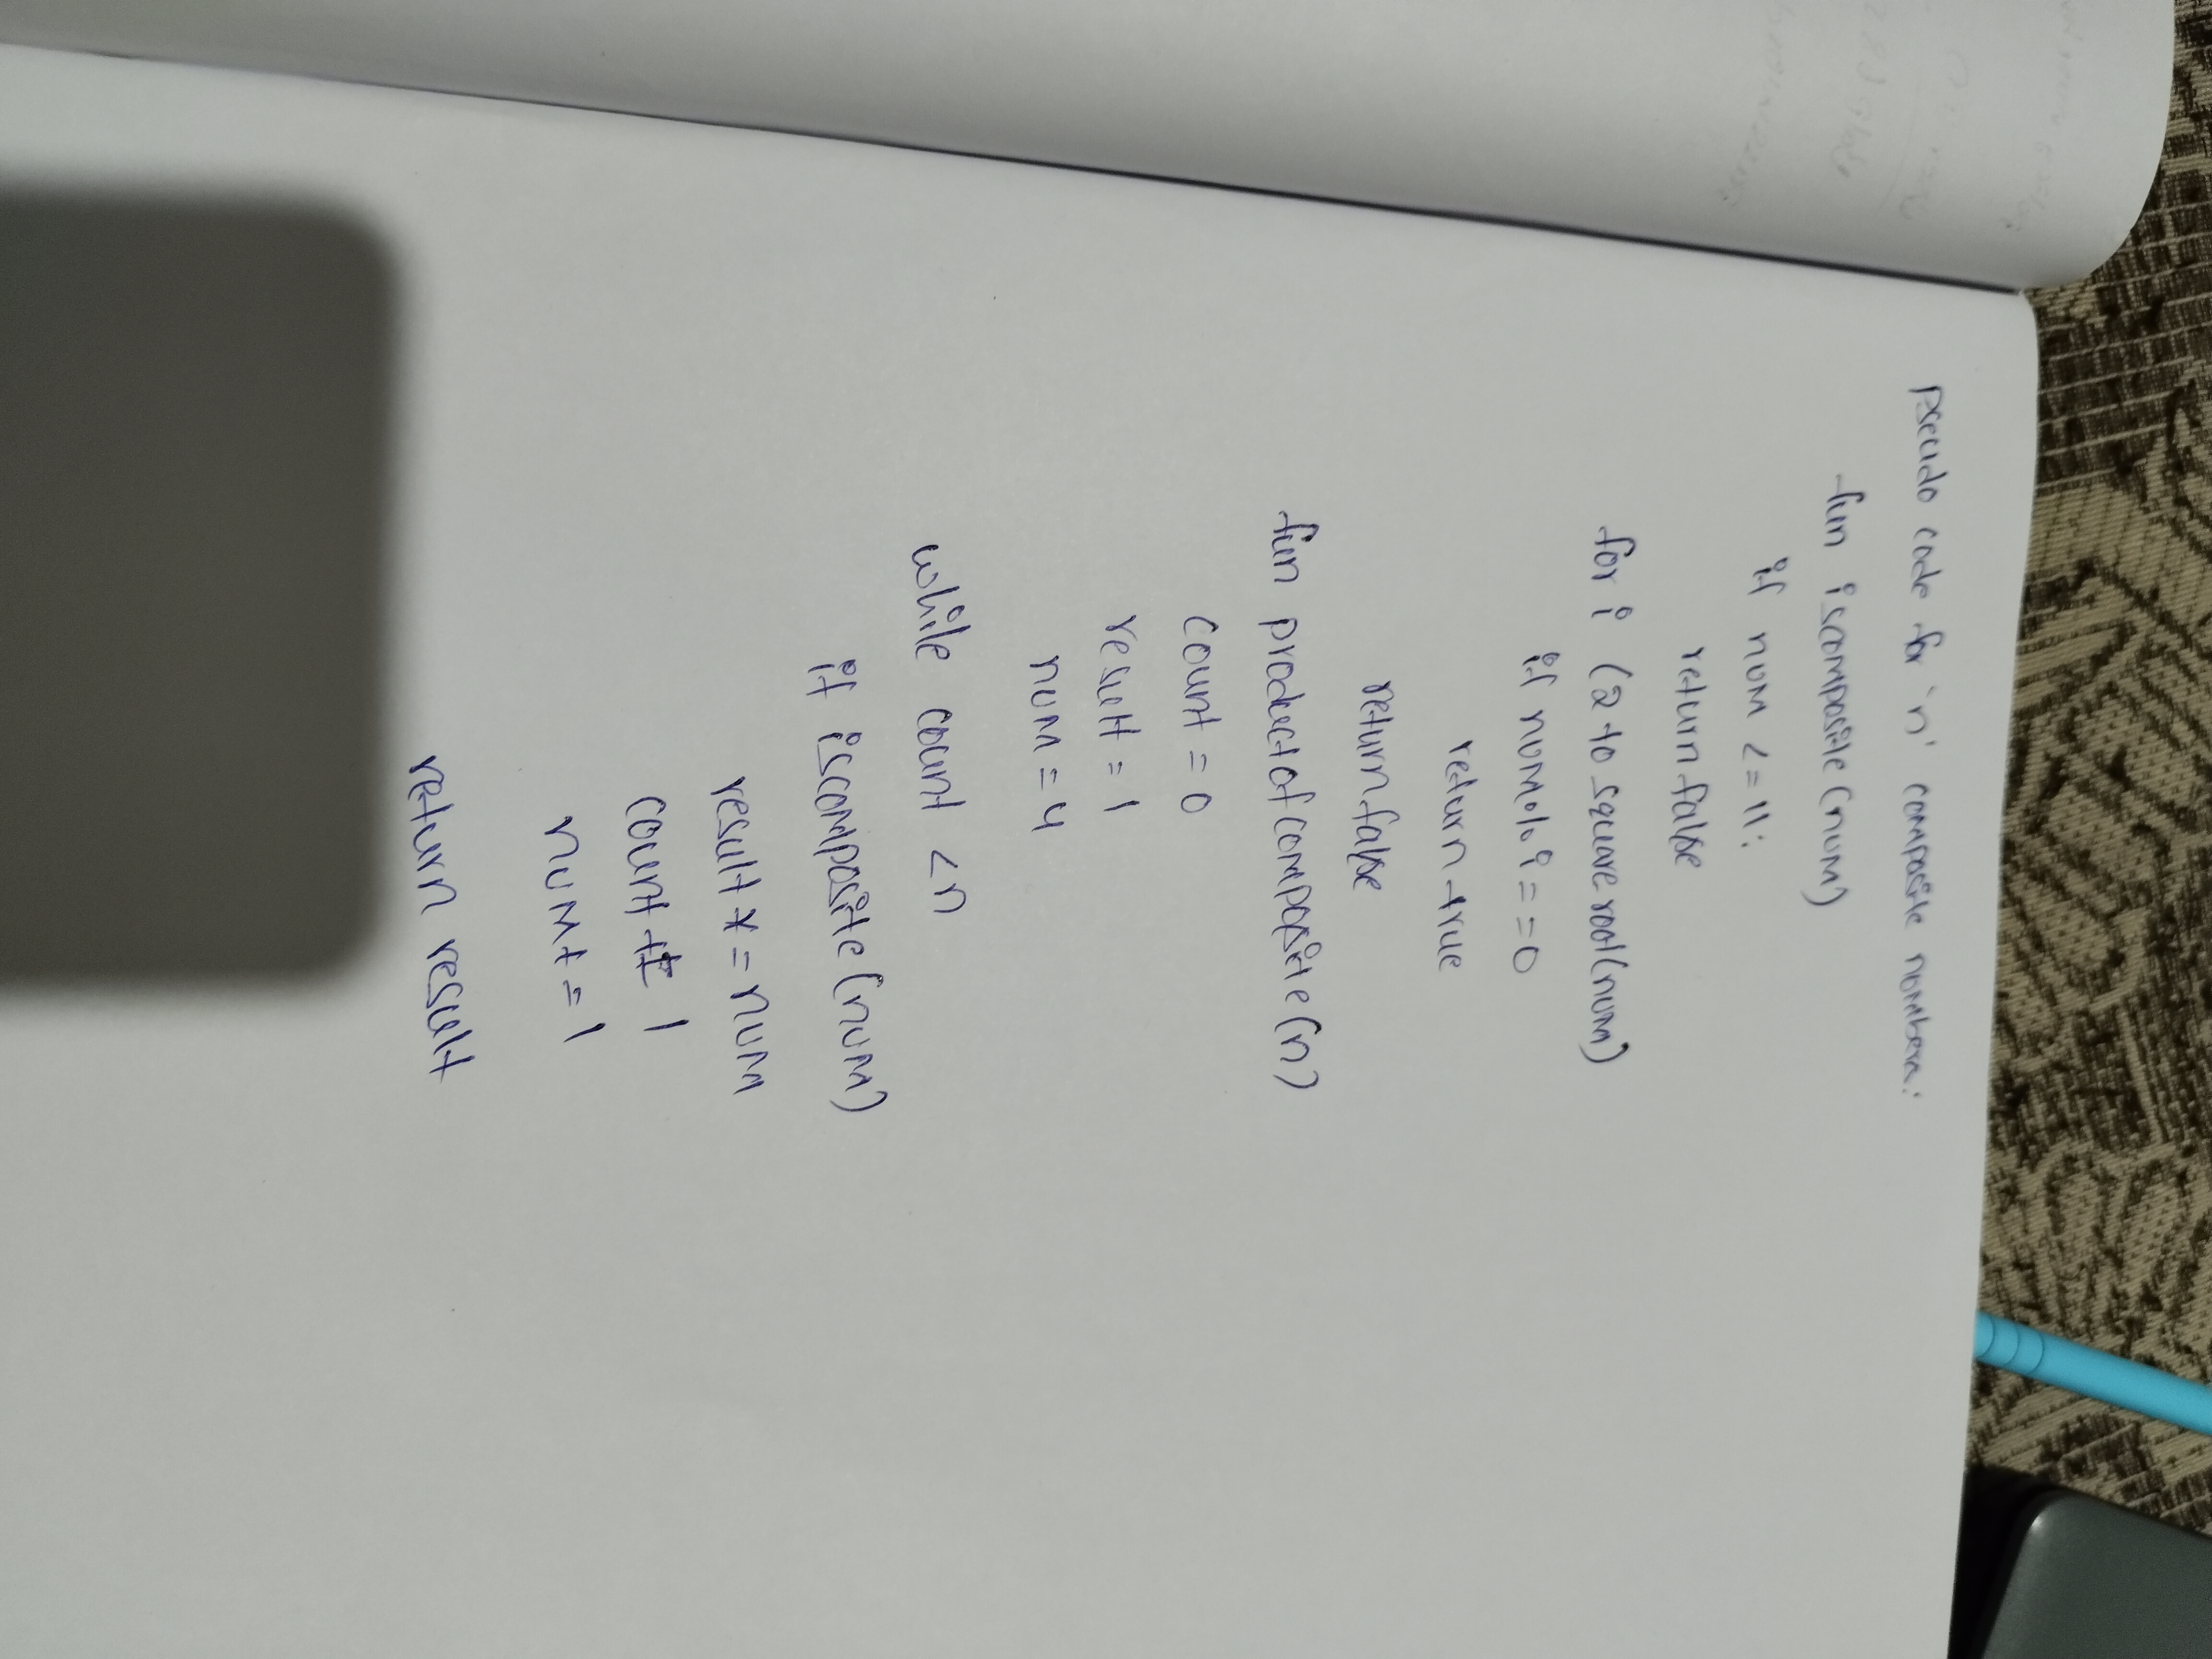 Pseudo code for 'n' composite numbers:
fun iscomposite(num)
if num <= 11:
return false
for i (2 to square root(num)
if num % i == 0
return true
return false
fun product of composite(n)
count = 0
result = 1
num = 4
while count < n
if iscomposite(num)
result * = num
count += 1
num + = 1
return result